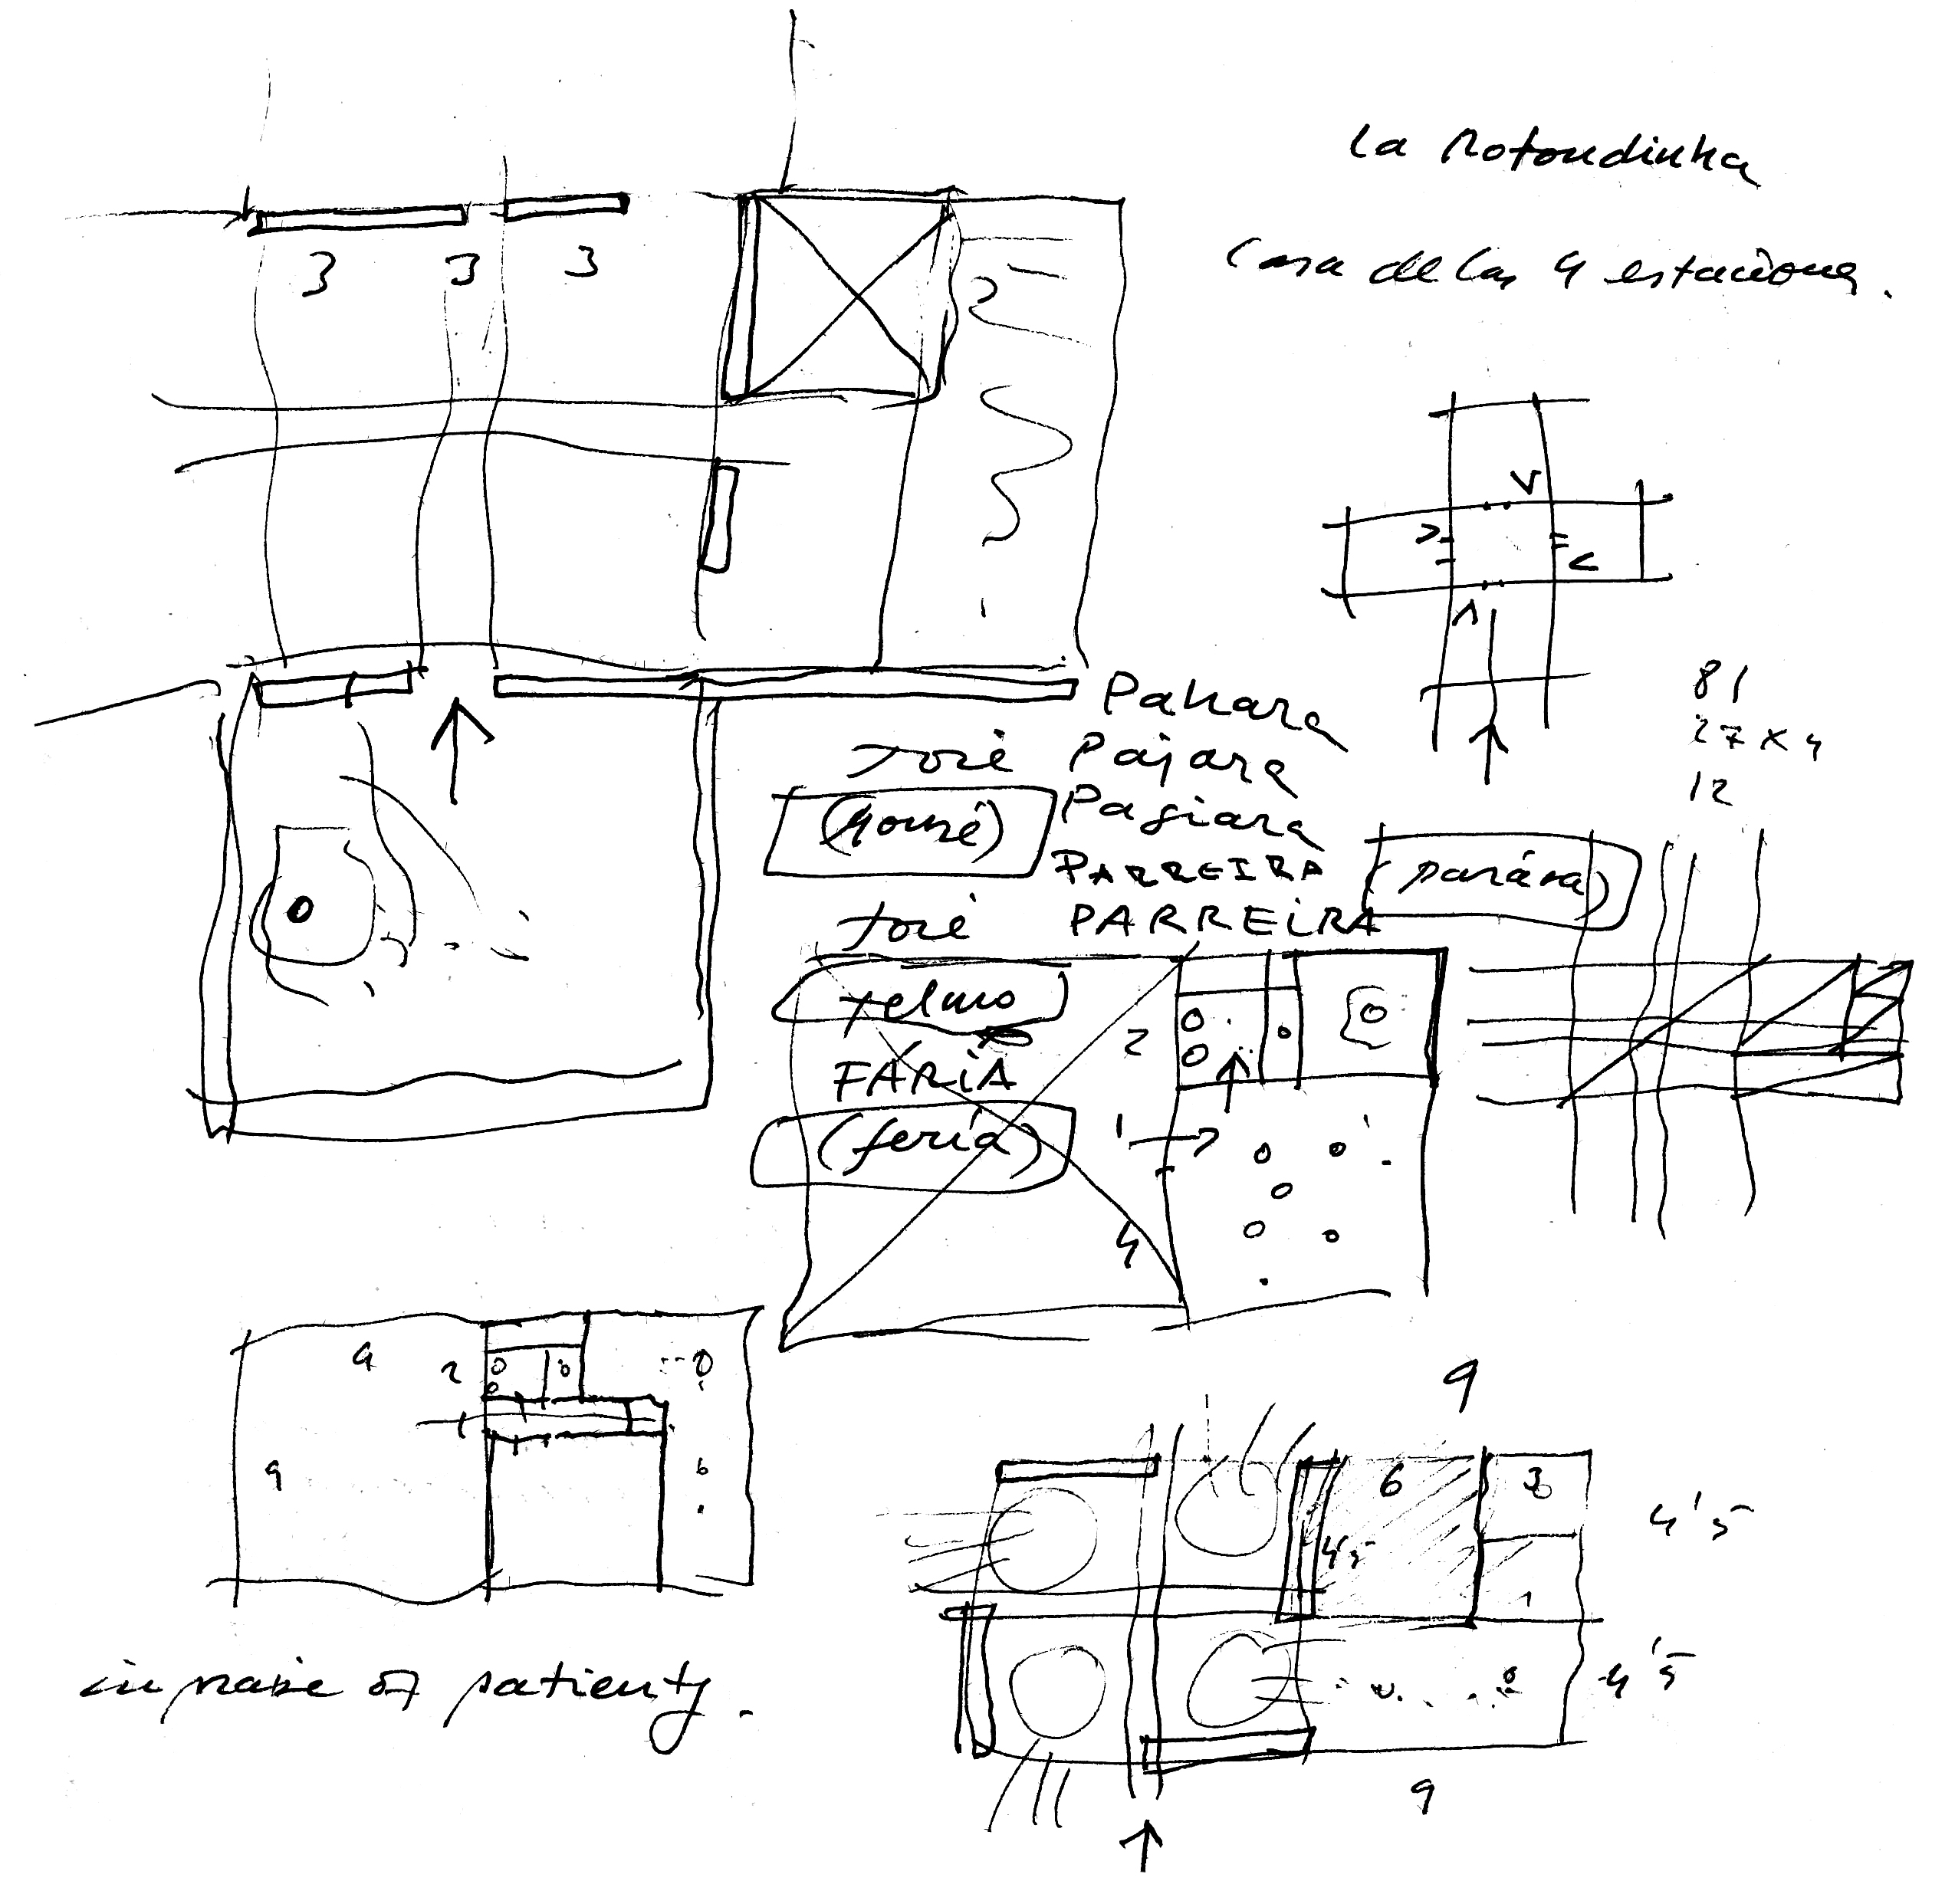 la Rotondinha
Casa de las 4 estaciones.
3 3 3
2
1
81
27 x 4
12
Pahara
José Pajara
Pagiara
PARREIRA
José PARREIRA
Telmo
FARIA
(feria)
2
1
4
9 2
1
9 6
9
6 3
4'5 4'5
1
4'5
9
in praise of patienty.